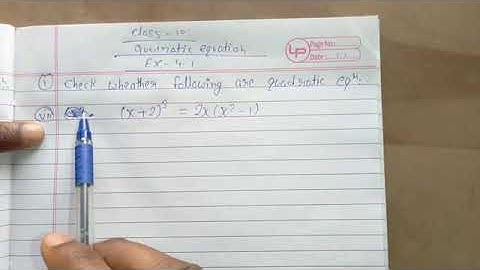 Class - 10
Quadriatic equation
Ex - 4.1
LP
Page No:
Date:
① Check wheather following are quadriatic eqⁿ.
(vii) (x+2)³ = 2x(x²-1)